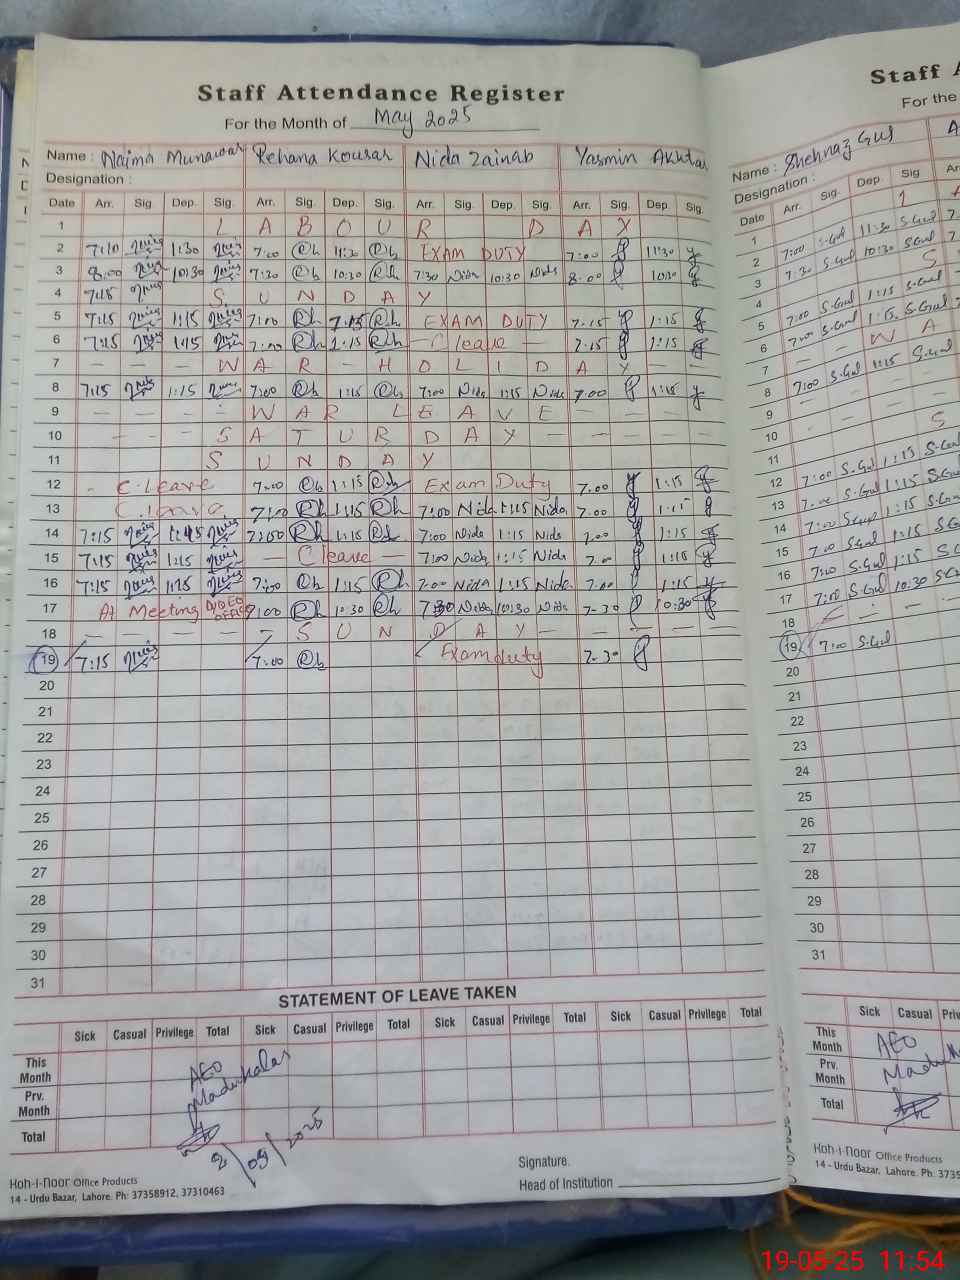 Staff Attendance Register
For the Month of May 2025
Name : Naima Munawar Rehana Kousar Nida Zainab Yasmin Akhtar
Designation :
Date Arr. Sig. Dep. Sig. Arr. Sig. Dep. Sig. Arr. Sig. Dep. Sig. Arr. Sig. Dep. Sig.
1 L A B O U R D A Y
2 7:10 1:30 7:00 Rh 11:30 Rh EXAM DUTY 7:00 11:30
3 8:00 10:30 7:30 Rh 10:30 Rh 7:30 Nida 10:30 Nida 8:00 10:30
4 7:15 S U N D A Y
5 7:15 1:15 7:00 Rh Rh EXAM DUTY 7:15 1:15
6 7:15 1:15 7:00 Rh 1:15 Rh - C leave - 7:15 1:15
7 - - - W A R - H O L I D A Y - -
8 7:15 1:15 7:00 Rh 1:15 Rh 7:00 Nida 1:15 Nida 7:00 1:15
9 - - - - W A R L E A V E - - -
10 - - S A T U R D A Y - - - - -
11 S U N D A Y
12 - C. Leave 7:00 Rh 1:15 Rh Exam Duty 7:00 1:15
13 C. leave 7:00 Rh 1:15 Rh 7:00 Nida 1:15 Nida 7:00 1:15
14 7:15 1:45 7:00 Rh 1:15 Rh 7:00 Nida 1:15 Nida 7:00 1:15
15 7:15 1:15 - C leave - 7:00 Nida 1:15 Nida 7:00 1:15
16 7:15 1:15 7:00 Rh 1:15 Rh 7:00 Nida 1:15 Nida 7:00 1:15
17 At Meeting OFFICE 7:00 Rh 10:30 Rh 7:30 Nida 10:30 Nida 7:30 10:30
18 - - - - - S U N D A Y - - - -
19 7:15 7:00 Rh Exam duty 7:30
20
21
22
23
24
25
26
27
28
29
30
31
STATEMENT OF LEAVE TAKEN
Sick Casual Privilege Total Sick Casual Privilege Total Sick Casual Privilege Total Sick Casual Privilege Total
This Month
Prv. Month
Total
AEO
Madukalas
2/05/2025
Signature.
Head of Institution
Koh-i-noor Office Products
14 - Urdu Bazar, Lahore. Ph: 37358912, 37310463
Staff A
For the
Name : Shehnaz Gul
Designation :
Date Arr. Sig. Dep. Sig. Arr
1
2 7:00 S.Gul 11:30 S.Gul
3 7:30 S.Gul 10:30 S.Gul
4 S
5 7:00 S.Gul 1:15 S.Gul
6 7:00 S.Gul 1:15 S.Gul
7 - - W A
8 7:00 S.Gul 1:15 S.Gul
9
10
11 S
12 7:00 S.Gul 1:15 S.Gul
13 7:00 S.Gul 1:15 S.Gul
14 7:00 S.Gul 1:15 S.Gul
15 7:00 S.Gul 1:15
16 7:00 S.Gul 1:15
17 7:00 S.Gul 10:30
18
19 7:00 S.Gul
20
21
22
23
24
25
26
27
28
29
30
31
Sick Casual
This Month
Prv. Month
Total
AEO
Koh-i-noor Office Products
14 - Urdu Bazar, Lahore. Ph:
19-05-25 11:54